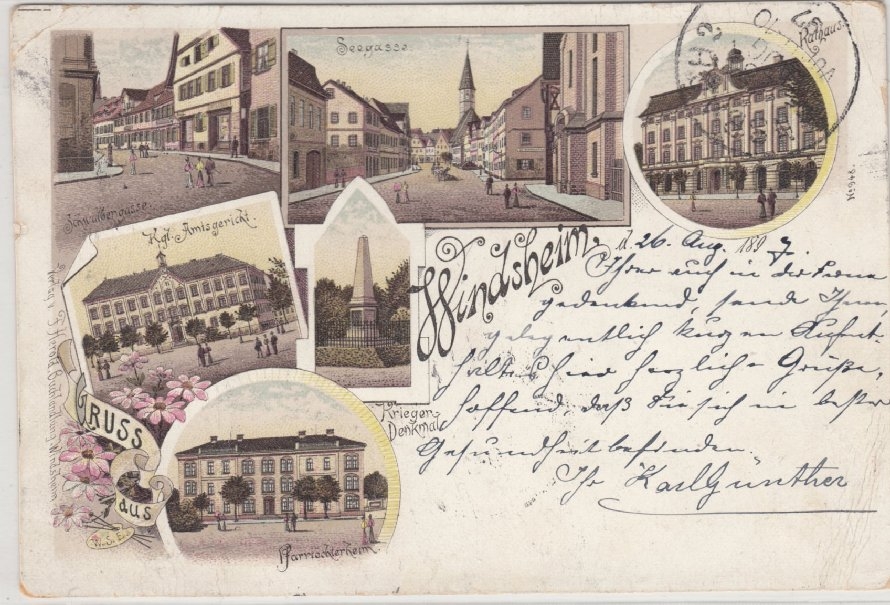 Seegasse
Rathaus.
No 948.
Schwalbengasse.
Kgl. Amtsgericht.
Krieger
Denkmal
Windsheim, d. 26. Aug. 1897.
Ihrer auch in der Ferne
gedenkend, sende Ihnen
gelegentlich kurzen Aufent-
haltes hier herzliche Grüße,
hoffend, daß Sie sich in bester
Gesundheit befinden.
Ihr Karl Günther
GRUSS
aus
Pfarrtöchterheim.